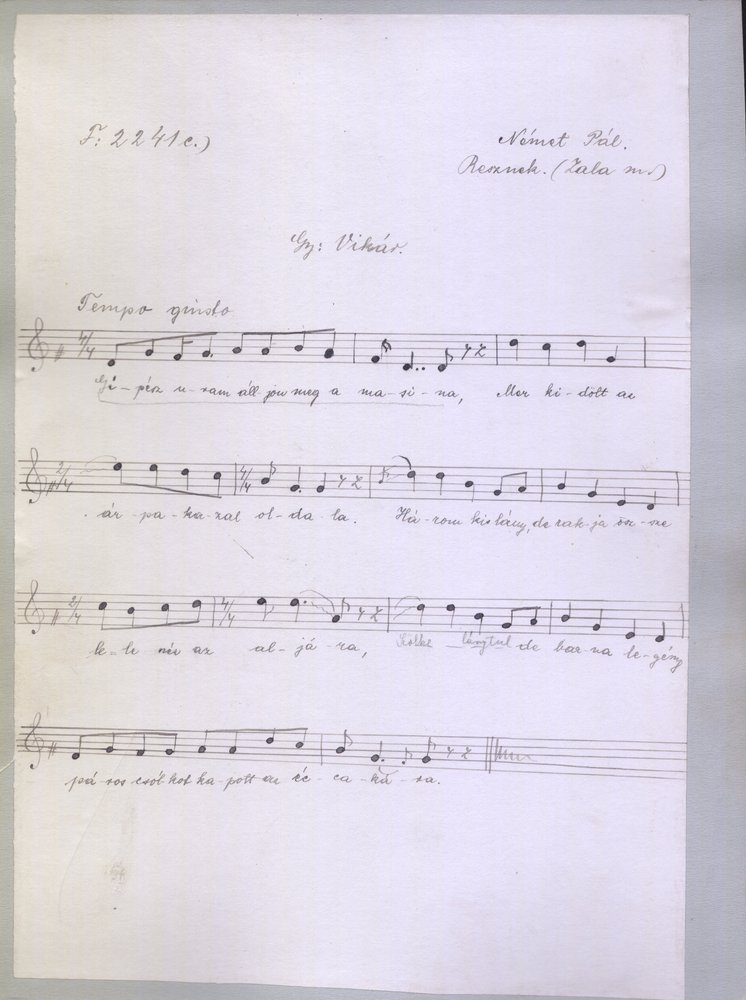 F: 2241c.)
Német Pál.
Resznek. (Zala m.)
Gy: Vikár.
Tempo giusto
4/4
Gé-pész u-ram áll-jon meg a ma-si-na, Mer ki-dölt az
2/4 4/4
ár-pa-ka-zal ol-da-la. Há-rom kis lány, de rak-ja ösz-sze
2/4 4/4
le-le néz az al-já-ra, Szőke lánytul de bar-na le-gény
pá-ros csók-kot ka-pott az éc-ca-ká-ra.